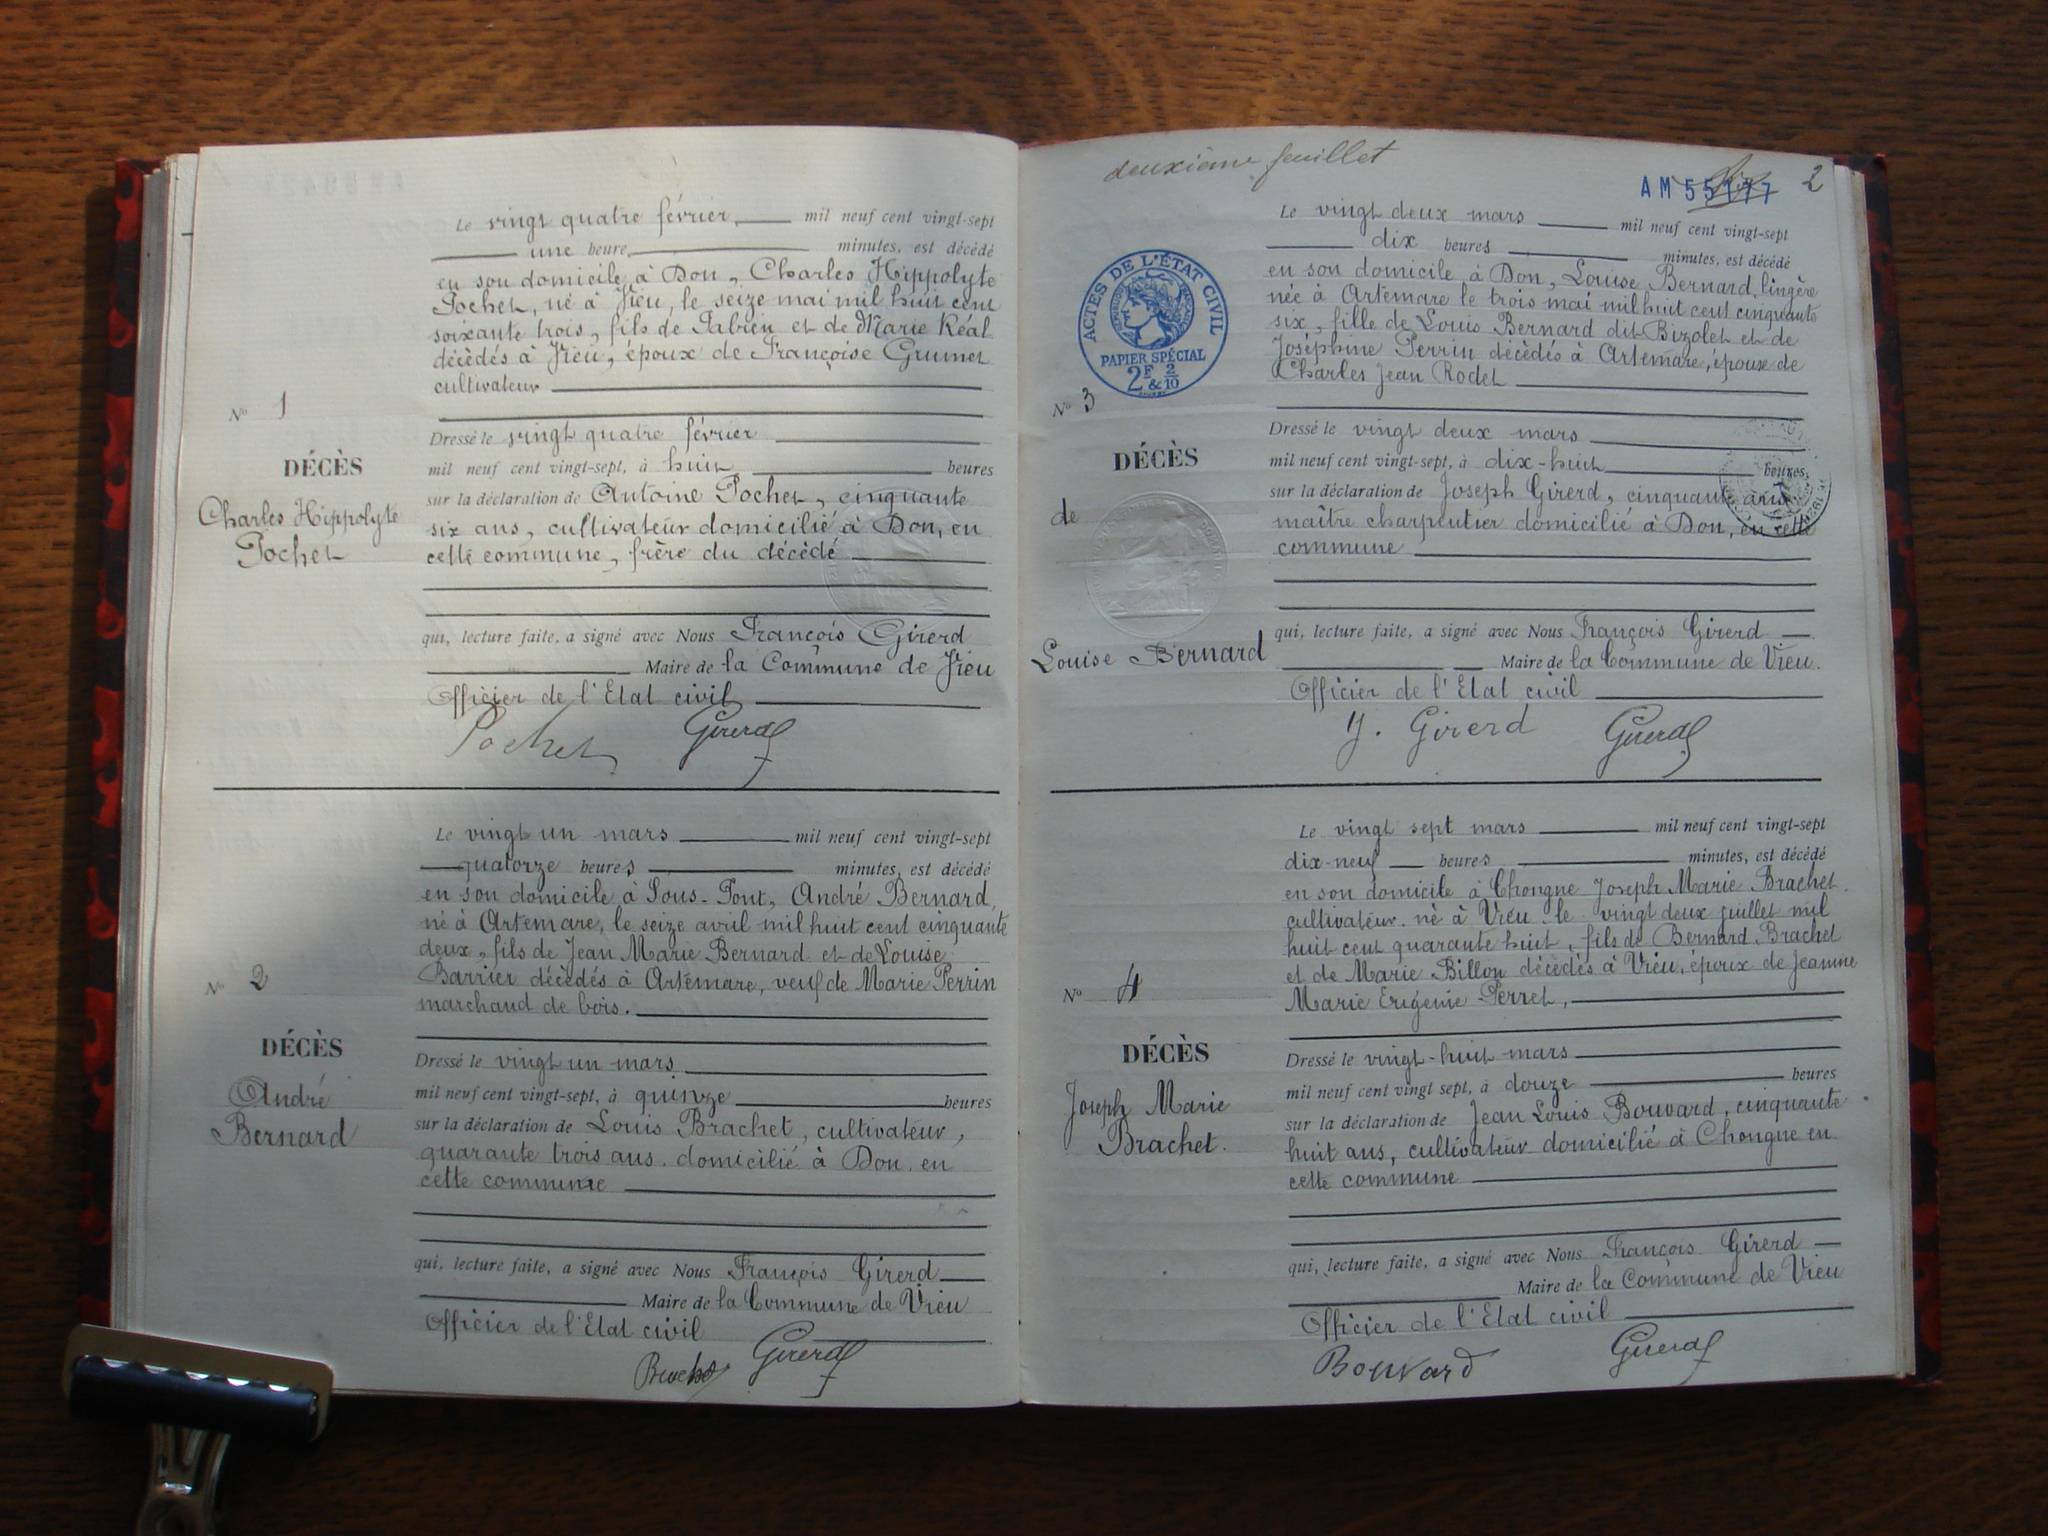 Le vingt quatre février mil neuf cent vingt-sept
une heure minutes, est décédé
en son domicile à Don, Charles Hippolyte
Pochet, né à Vieu, le seize mai mil huit cent
soixante trois, fils de Fabien et de Marie Réal
décèdés à Vieu, époux de Françoise Grumet
cultivateur
No 1
DÉCÈS
Charles Hippolyte
Pochet
Dressé le vingt quatre février
mil neuf cent vingt-sept, à huit heures
sur la déclaration de Antoine Pochet, cinquante
six ans, cultivateur domicilié à Don, en
cette commune, frère du décèdé
qui, lecture faite, a signé avec Nous François Girerd
Maire de la Commune de Vieu
Officier de l'Etat civil
Pochet Girerd
Le vingt un mars mil neuf cent vingt-sept
quatorze heures minutes, est décédé
en son domicile à Sous-Pont, André Bernard,
né à Artemare, le seize avril mil huit cent cinquante
deux, fils de Jean Marie Bernard et de Louise
Barrier décèdés à Artemare, veuf de Marie Perrin
marchand de bois.
No 2
DÉCÈS
André
Bernard
Dressé le vingt un mars
mil neuf cent vingt-sept, à quinze heures
sur la déclaration de Louis Brachet, cultivateur,
quarante trois ans. domicilié à Don. en
cette commune
qui, lecture faite, a signé avec Nous François Girerd
Maire de la Commune de Vieu
Officier de l'Etat civil
Girerd
deuxième feuillet
AM 55177 2
Le vingt deux mars mil neuf cent vingt-sept
dix heures minutes, est décédé
en son domicile à Don, Louise Bernard, lingère
née à Artemare le trois mai mil huit cent cinquante
six, fille de Louis Bernard dit Bizolet et de
Joséphine Perrin décèdés à Artemare, épouse de
Charles Jean Rodet
ACTES DE L'ÉTAT CIVIL
PAPIER SPÉCIAL
2F 2/10
&
No 3
DÉCÈS
de
Louise Bernard
Dressé le vingt deux mars
mil neuf cent vingt-sept, à dix-huit heures
sur la déclaration de Joseph Girerd, cinquante ans,
maître charpentier domicilié à Don, en cette
commune
qui, lecture faite, a signé avec Nous François Girerd
Maire de la Commune de Vieu.
Officier de l'Etat civil
J. Girerd Girerd
Le vingt sept mars mil neuf cent vingt-sept
dix-neuf heures minutes, est décédé
en son domicile à Chongne Joseph Marie Brachet.
cultivateur. né à Vieu le vingt deux juillet mil
huit cent quarante huit, fils de Bernard Brachet
et de Marie Billon décèdés à Vieu, époux de Jeanne
Marie Eugénie Perret,
No 4
DÉCÈS
Joseph Marie
Brachet.
Dressé le vingt-huit mars
mil neuf cent vingt sept, à douze heures
sur la déclaration de Jean Louis Bouvard, cinquante
huit ans, cultivateur domicilié à Chongne en
cette commune
qui, lecture faite, a signé avec Nous François Girerd
Maire de la Commune de Vieu
Officier de l'Etat civil
Bouvard Girerd